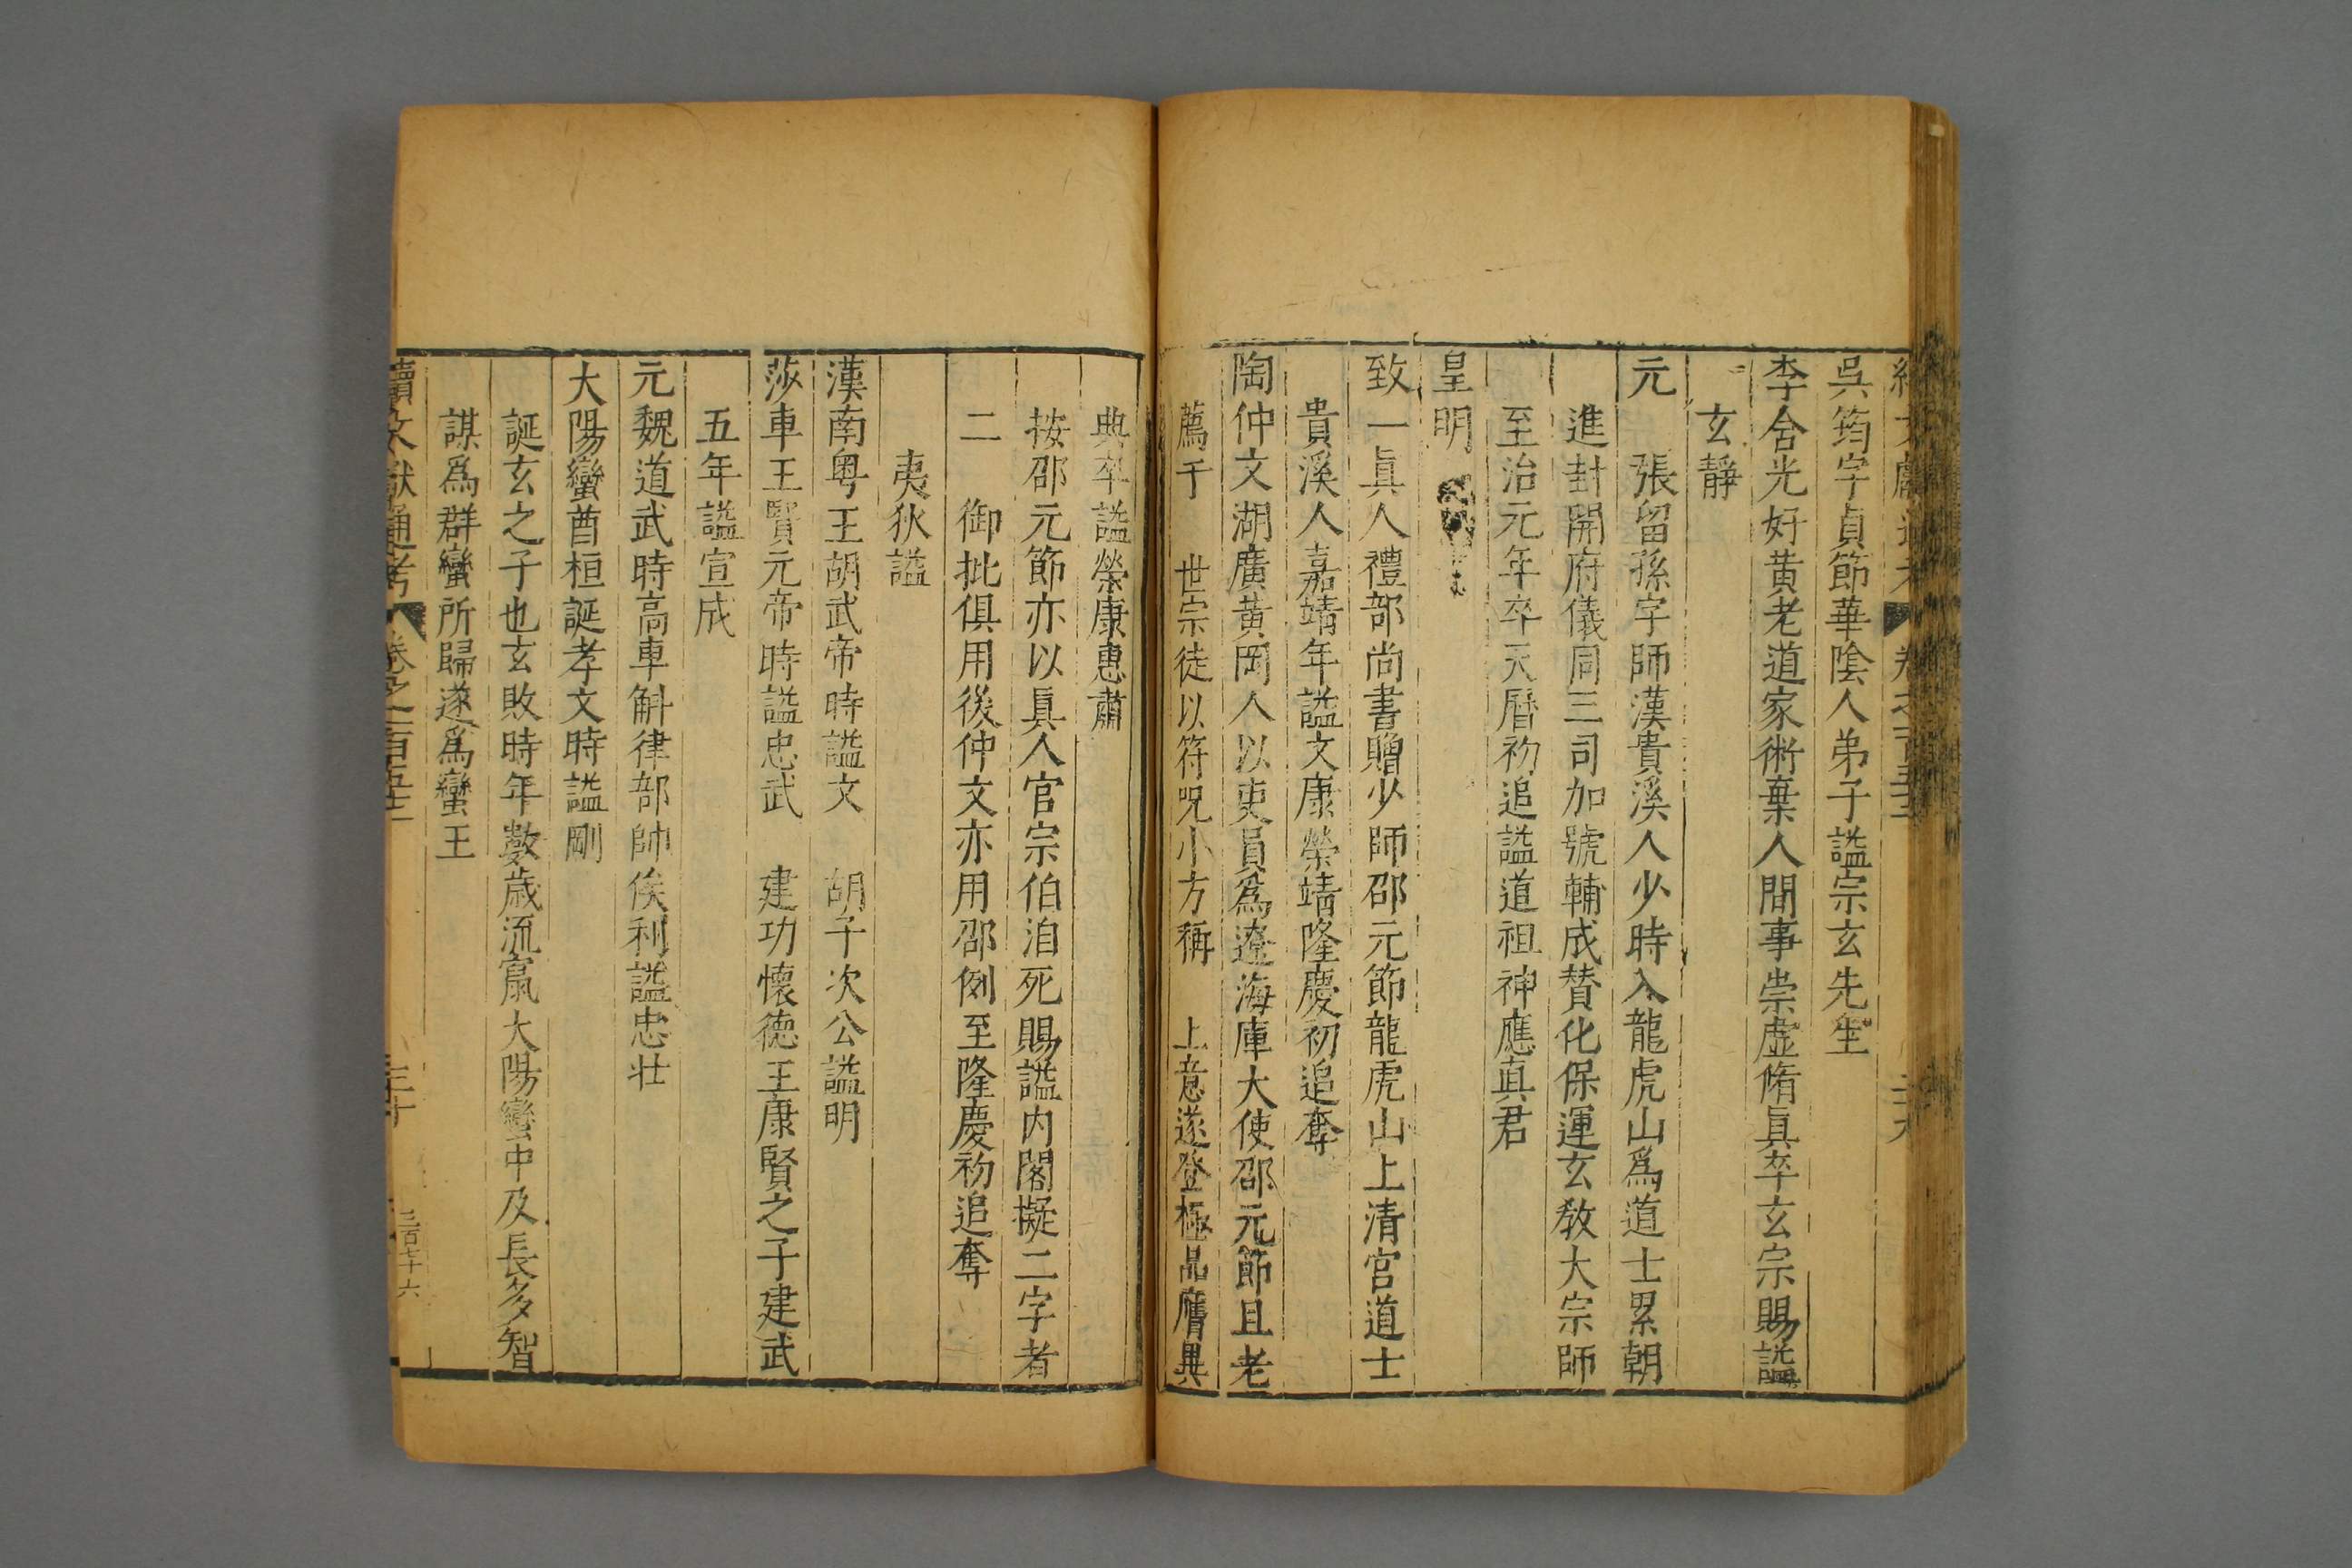 吳筠字貞節華陰人弟子諡宗玄先生
李含光好黃老道家術棄人間事崇虛脩眞卒玄宗賜諡
玄靜
元　張留孫字師漢貴溪人少時入龍虎山爲道士累朝
進封開府儀同三司加號輔成賛化保運玄敎大宗師
至治元年卒天曆初追諡道祖神應眞君
皇明
致一眞人禮部尚書贈少師邵元節龍虎山上清宮道士
貴溪人嘉靖年諡文康榮靖隆慶初追奪
陶仲文湖廣黃岡人以吏員爲遼海庫大使邵元節且老
薦于　世宗徒以符呪小方稱　上意遂登極品膺異
典卒諡榮康惠肅
按邵元節亦以眞人官宗伯洎死賜諡內閣擬二字者
二　御批俱用後仲文亦用邵例至隆慶初追奪
夷狄諡
漢南粵王胡武帝時諡文　胡子次公諡明
莎車王賢元帝時諡忠武　建功懷德王康賢之子建武
五年諡宣成
元魏道武時高車斛律部帥俟利諡忠壯
大陽蠻酋桓誕孝文時諡剛
誕玄之子也玄敗時年數歲流竄大陽蠻中及長多智
謀爲群蠻所歸遂爲蠻王
續文獻通考　卷之一百五十二　三十　三百七十六